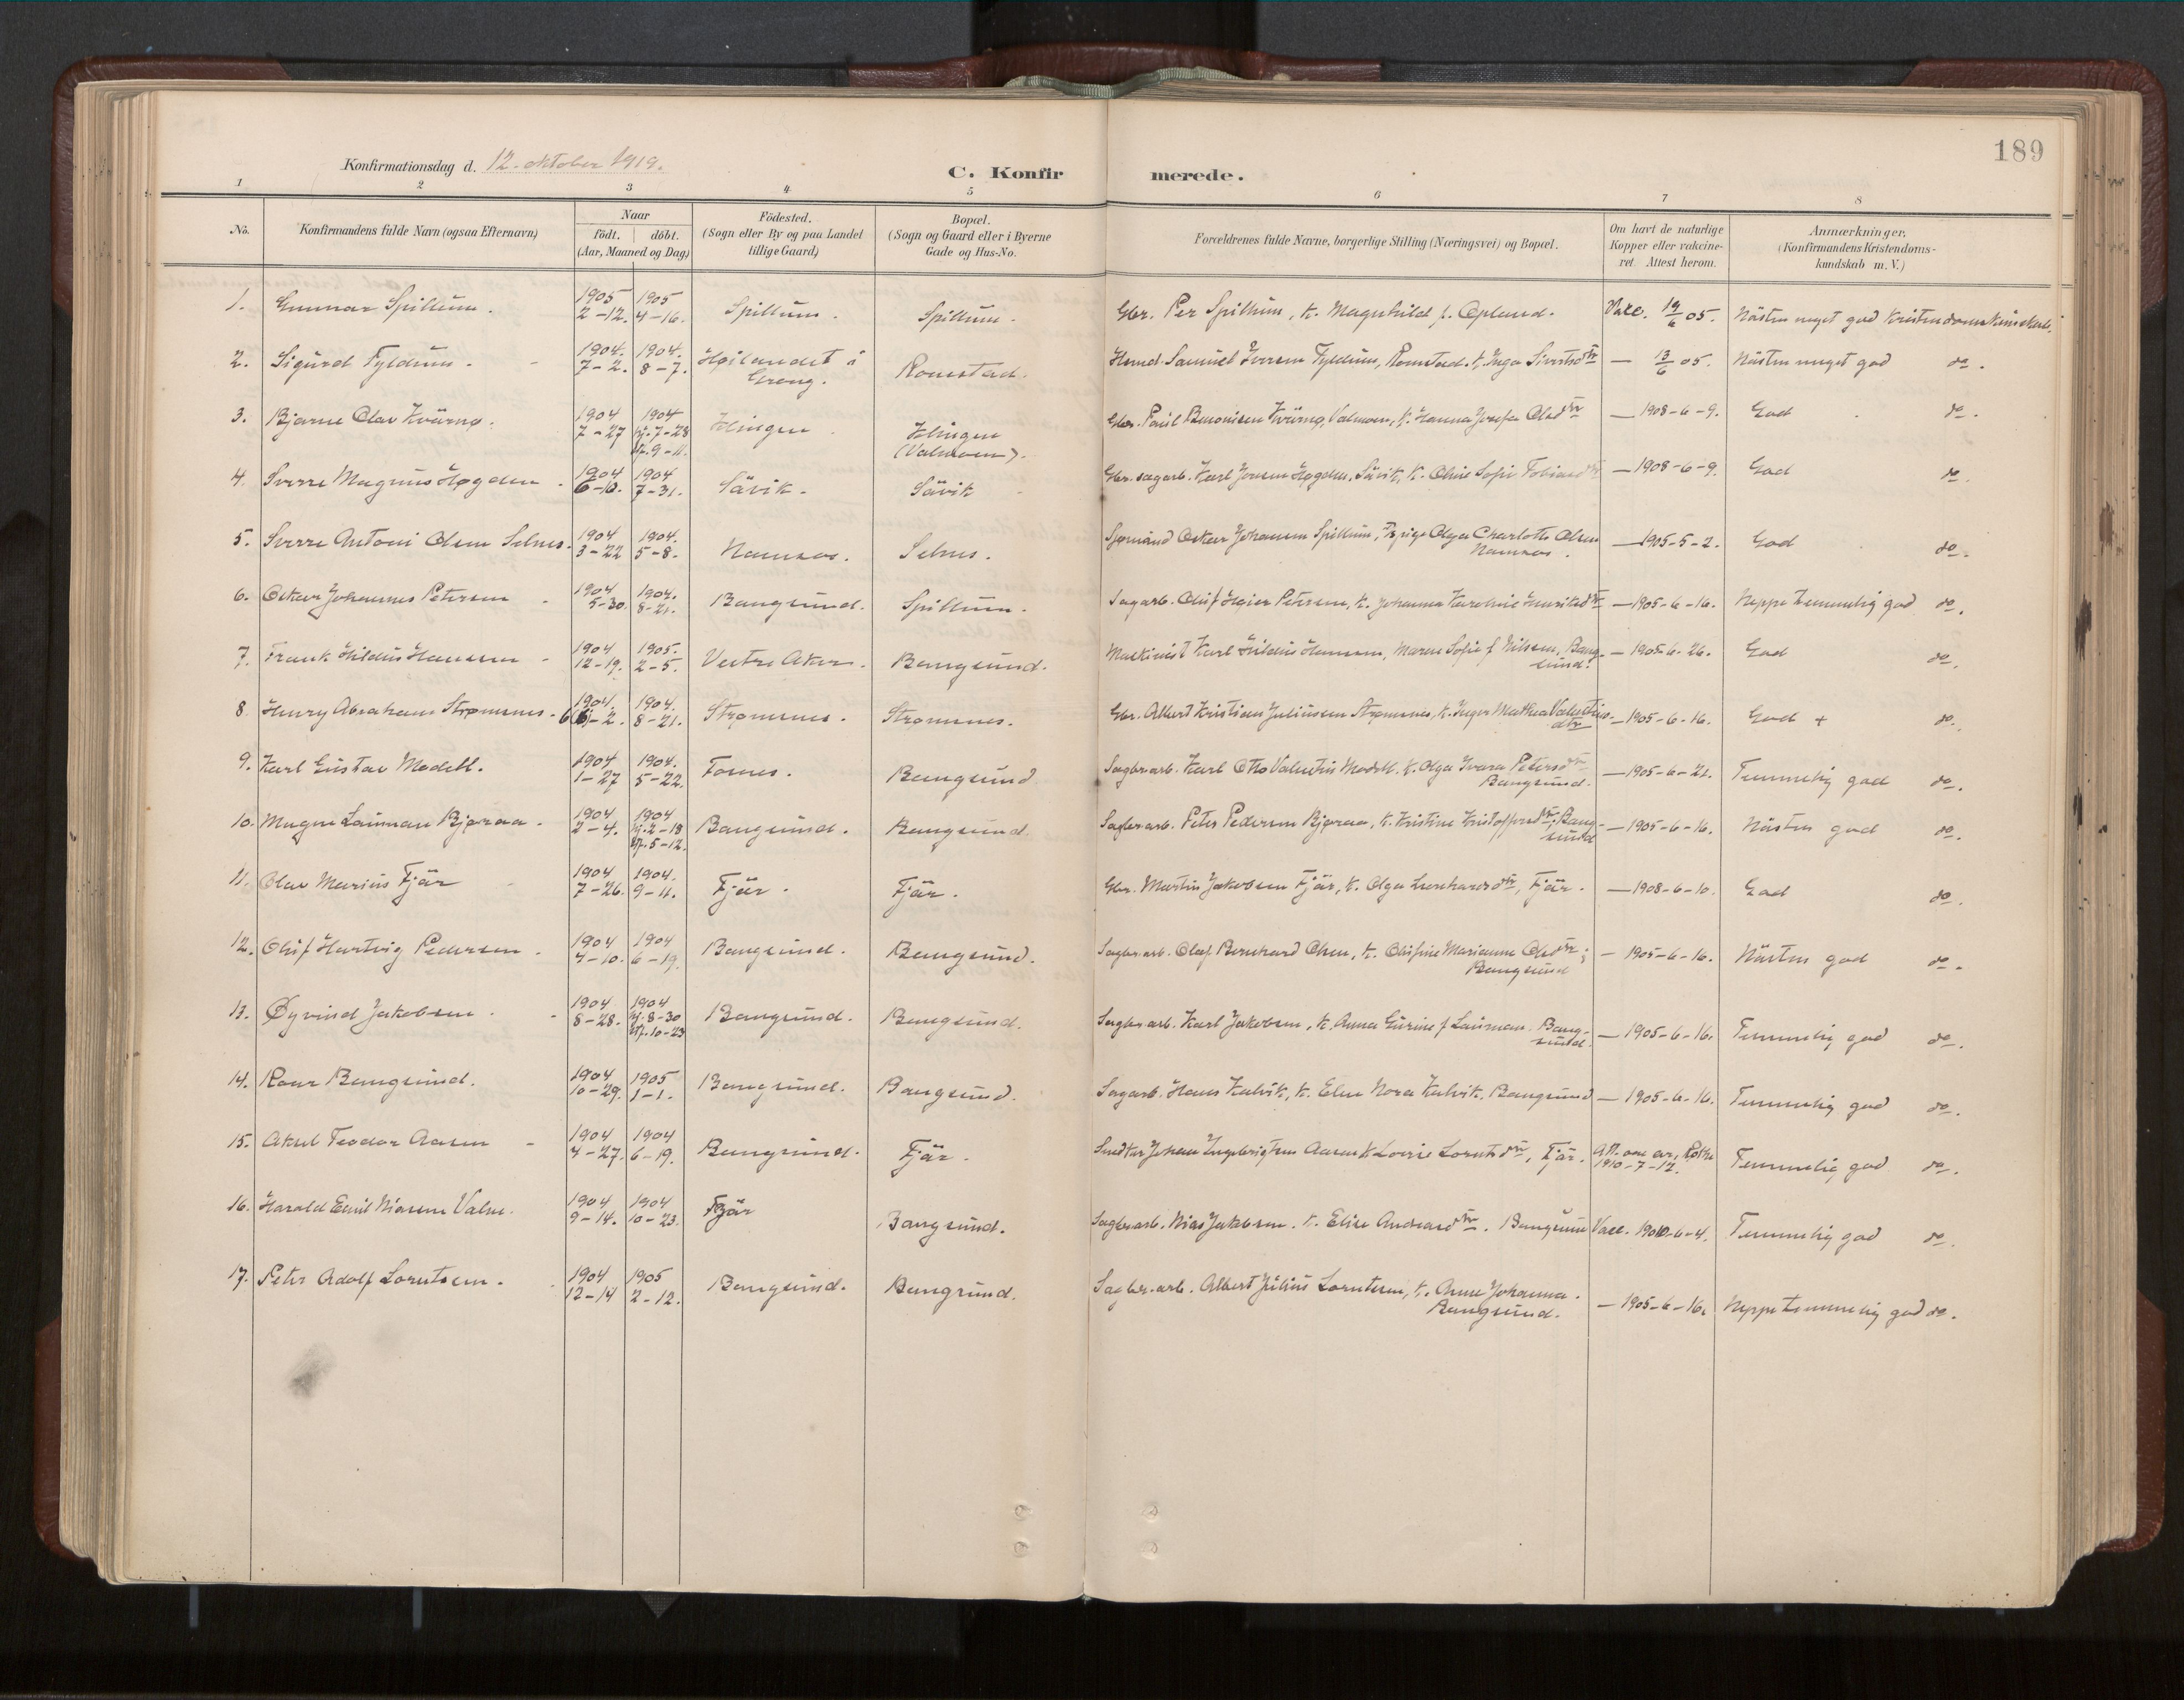 189
Konfirmationsdag d. 12. oktober 1919.
C. Konfirmerede.
1 2 3 4 5 6 7 8
No. Konfirmandens fulde Navn (ogsaa Efternavn) Naar født. døbt. (Aar, Maaned og Dag) Födested. (Sogn eller By og paa Landet tillige Gaard) Bopæl. (Sogn og Gaard eller i Byerne Gade og Hus-No. Forældrenes fulde Navne, borgerlige Stilling (Næringsvei) og Bopæl. Om havt de naturlige Kopper eller vakcineret. Attest herom. Anmærkninger, (Konfirmandens Kristendomskundskab m. V.)
1. Gunnar Spillum. 1905 2-12. 1905 4-16. Spillum. Spillum. Gbr. Per Spillum, k. Magnhild f. Opland. Vakc. 19/6 05. Nästen meget god Kristendomskundskab.
2. Sigurd Fyldum. 1904. 7-2. 1904. 8-7. Høilandet i Grong. Romstad. Samuel Iversen Fyldum, Romstad. k. Inga Sivertsdtr — 13/6 05. Nästen meget god do.
3. Bjarne Olav Kvürnø. 1904 7-27 1904 hj. 7-28 stf. 9-11. Klingen Klingen (Valmoen). Gbr. Paul Kvürnø, Valmoen, k. Hanna Josefa Olsdtr — 1908-6-9. God do.
4. Sverre Magnus Høgden. 1904 6-10. 1904 7-31. Sävik. Sävik Gbr. sagarb. Karl Jensen Høgden, Sävik, k. Oline Sofie Tobiasdtr — 1908-6-9. God do.
5. Sverre Antoni Olsen Selnes. 1904 3-22 1904. 5-8. Namsos. Selnes. Sjømand Oskar Johansen Spillum, Pige Olga Charlotte Olsen Namsos. — 1905-5-2. God do.
6. Oskar Johannes Petersen 1904 5-30. 1904. 8-21. Bangsund. Spillum. Sagarb. Oluf Petersen, k. Johanna Karoline Henriksdtr — 1905-6-16. Neppe temmelig god do.
7. Frank Hildus Hansen 1904 12-19. 1905. 2-5. Vestre Aker. Bangsund. Maskinist Karl Hildus Hansen, Maren Sofie f. Nilsen, Bangsund. — 1905-6-26. God do.
8. Henry Abraham Strømsnes. 1904. 6-2. 1904. 8-21. Strømsnes. Strømsnes. Gbr. Albert Kristian Juliussen Strømsnes, k. Inger Mathea Valentinsdtr — 1905-6-16. God + do.
9. Karl Gustav Modell. 1904 1-27 1904. 5-22. Fosnes. Bangsund Sagbr.arb. Karl Otto Valentin Modell. k. Olga Ivara Petersdtr Bangsund. — 1905-6-21. Temmelig god do.
10. Magne Lauman Bjøraa. 1904 2-4. 1904 hj. 2-18 stf. 5-12. Bangsund. Bangsund. Sagbr.arb. Peter Pedersen Bjøraa, k. Kristine Kristoffersdtr, Bangsund — 1905-6-16. Nästen god do.
11. Olav Marius Fjär 1904 7-26. 1904. 9-11. Fjär. Fjär. Gbr. Martin Jakobsen Fjär, k. Olga Leonhardsdtr, Fjär. — 1908-6-10. God do.
12. Oluf Hartvig Pedersen. 1904 4-10. 1904 6-19. Bangsund. Bangsund. Sagbr.arb. Olaf Bernhard Olsen, k. Marianne Olsdtr; Bangsund — 1905-6-16. Nästen god do.
13. Øyvind Jakobsen. 1904 8-28. 1904 hj. 8-30 stf. 10-23 Bangsund. Bangsund. Sagbr.arb. Karl Jakobsen, k. Anna Gurine f. Lauman. Bangsund. — 1905-6-16. Temmelig god do.
14. Roar Bangsund. 1904 10-29. 1905 1-1. Bangsund. Bangsund. Sagarb. Hans Kalvik, k. Elen Nora Kalvik, Bangsund — 1905-6-16. Temmelig god do.
15. Aksel Teodor Aasen 1904 4-27. 1904 6-19. Bangsund. Fjär. Johan Ingebrigtsen Aasen k. Lovise Lorntsdtr, Fjär. Att. om 1910-7-12. Temmelig god do.
16. Harald Emil Niasen Valne. 1904 9-14. 1904 10-23. Fjär Bangsund. Sagbr.arb. Nias Jakobsen. k. Elise Andreasdtr. Bangsund Vacc. 1910-6-4. Temmelig god do.
17. Peter Adolf Lorntsen. 1904 12-14 1905 2-12. Bangsund. Bangsund. Sagbr.arb. Albert Julius Lorntsen, k. Anne Johanna. Bangsund. — 1905-6-16. Neppe temmelig god do.